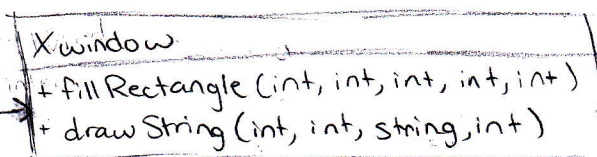 Xwindow
+ fillRectangle (int, int, int, int, int)
+ drawString (int, int, string, int)